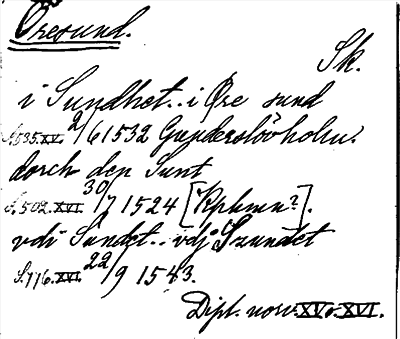 Öresund.
Sk.
i Sundhet.. i Øre sund
S. 535. XV. 2/6 1532 Gunderslövholm.
dorch den Sunt
S. 502. XVI. 30/7 1524 [Kphmn?].
vdi Sundet.. vdj Szundet
S. 716. XVI. 22/9 1543.
Dipl. norv. XV o. XVI.